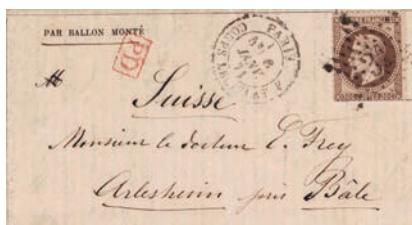 PAR BALLON MONTÉ
PD
PARIS
JANV
71
M
Suisse
Monsieur le docteur E. Frey
Arlesheim près Bâle